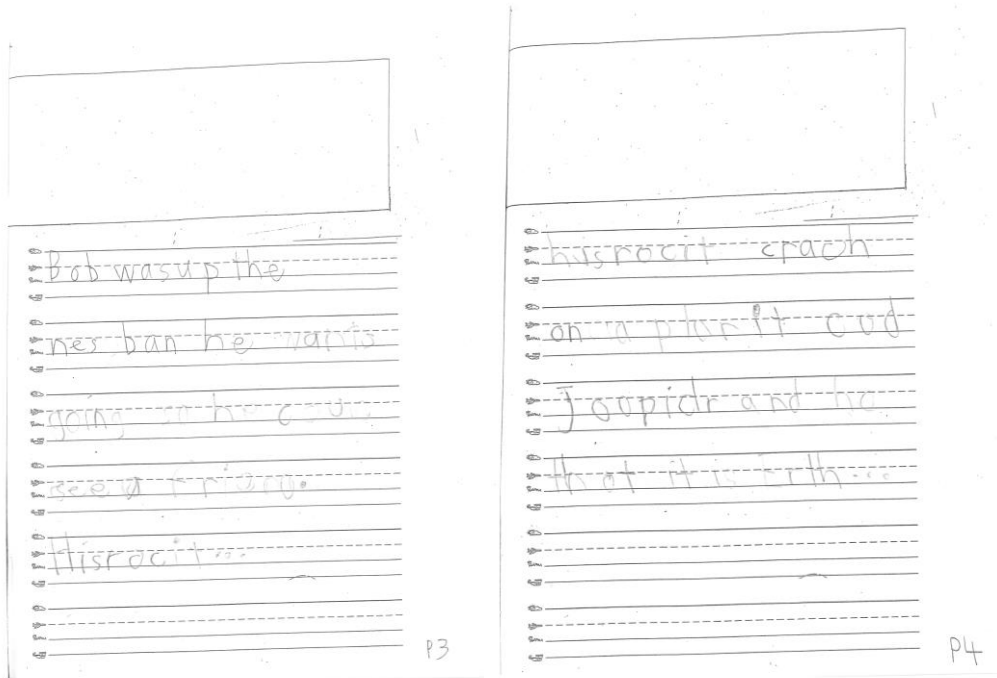 Bob was up the
nes ban he wants
going so he c
see a friend.
Hisrocit...
P3
hisrocit crach
on a plan it cod
Joopidr and he
that it is Erth...
P4